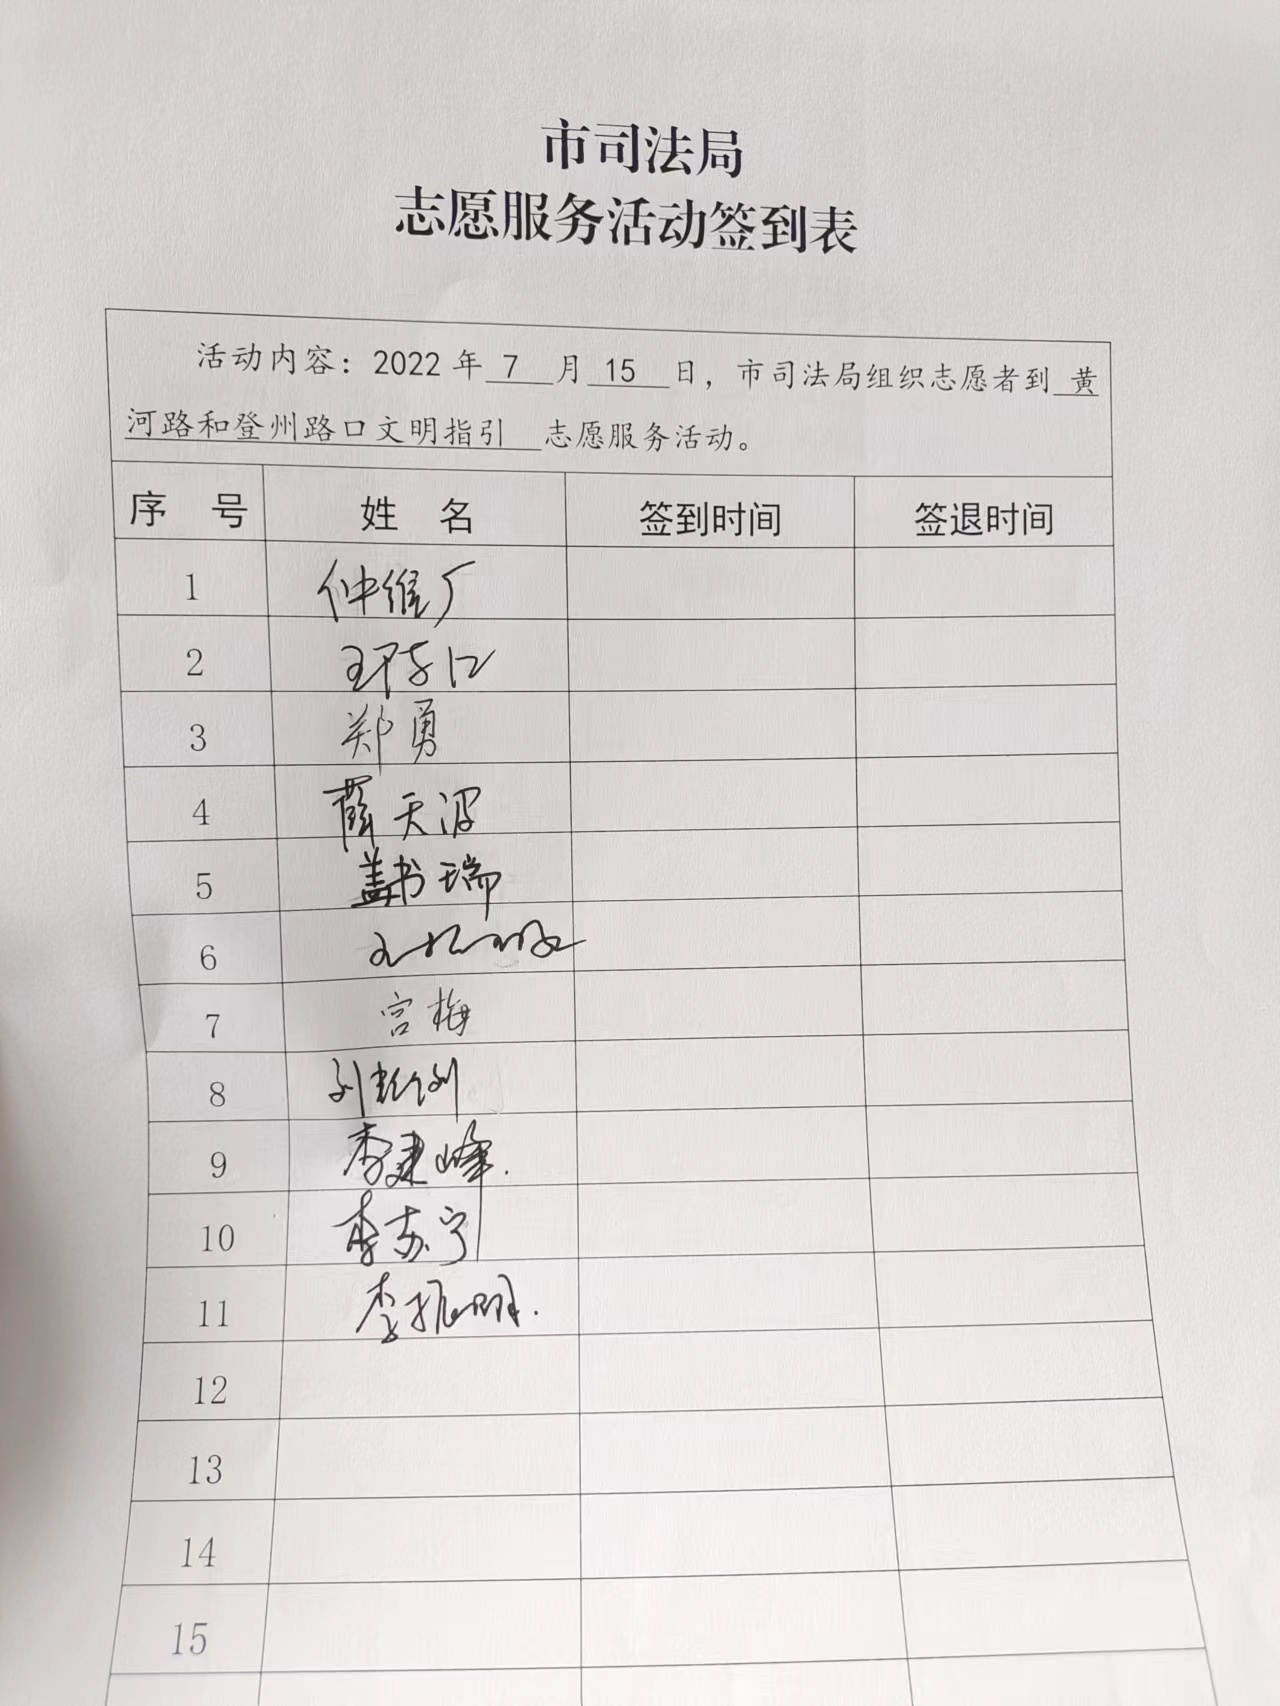 市司法局
志愿服务活动签到表
活动内容：2022 年 7 月 15 日，市司法局组织志愿者到 黄
河路和登州路口文明指引 志愿服务活动。
序 号 姓 名 签到时间 签退时间
1 仲维广
2
3 郑勇
4 薛天波
5 盖书瑞
6
7 宫梅
8
9 李建峰.
10 李苏宁
11 李振明.
12
13
14
15